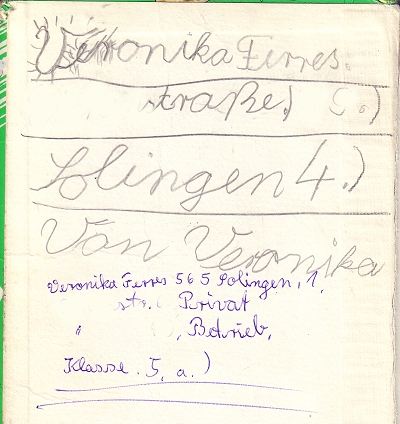 Veronika Ferres.
straße.) 5.)
Solingen 4.)
Von Veronika
Veronika Ferres 565 Solingen, 1,
str. Privat
" , Betrieb,
Klasse. 5, a.)